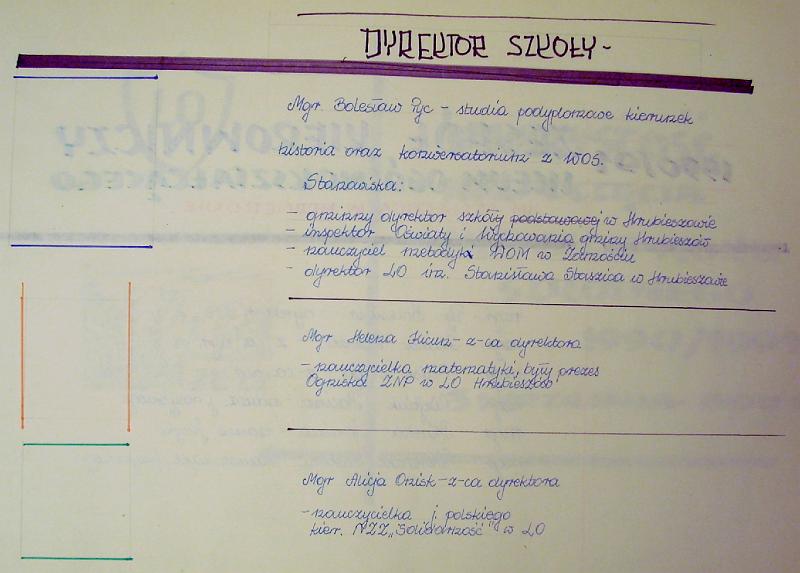 DYREKTOR SZKOŁY-
Mgr. Bolesław Pyc - studia podyplomowe kierunek
historia oraz konwersatorium z WOS.
Stanowiska:
- gminny dyrektor szkoły podstawowej w Hrubieszowie
- inspektor Oświaty i Wychowania gminy Hrubieszów
- nauczyciel metodyk WOM w Zamościu
- dyrektor LO im. Stanisława Staszica w Hrubieszowie
Mgr Helena Kicun - z-ca dyrektora
- nauczycielka matematyki, były prezes
Ogniska ZNP w LO Hrubieszów
Mgr Alicja - z-ca dyrektora
- nauczycielka j. polskiego
kier. NZZ „Solidarność” w LO